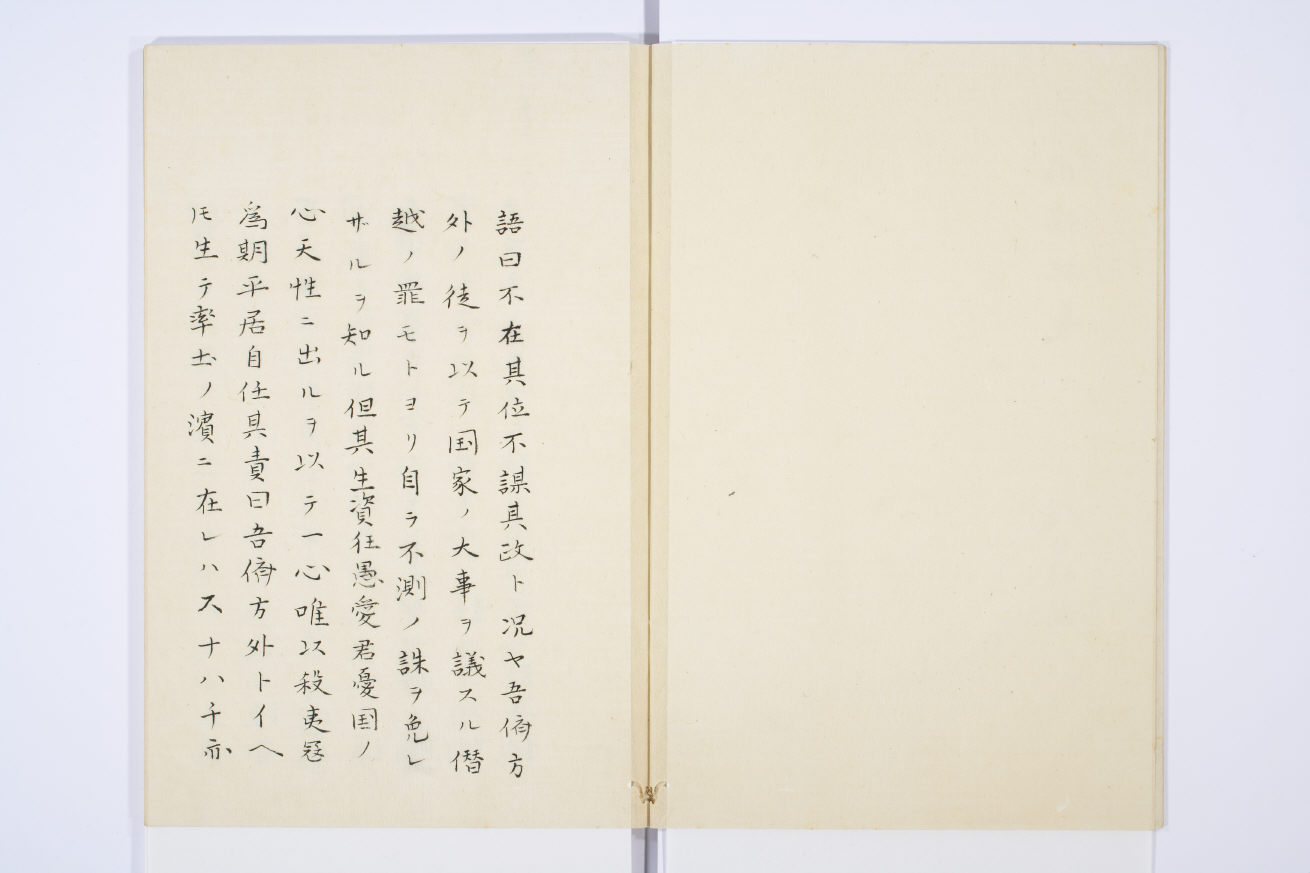 語曰不在其位不謀其政ト况ヤ吾儕方
外ノ徒ヲ以テ国家ノ大事ヲ議スル僭
越ノ罪モトヨリ自ラ不測ノ誅ヲ免レ
ザルヲ知ル但其生資狂愚愛君憂国ノ
心天性ニ出ルヲ以テ一心唯以殺夷冦
為期平居自任其責曰吾儕方外トイヘ
𪜈生テ率土ノ濱ニ在レハスナハチ亦